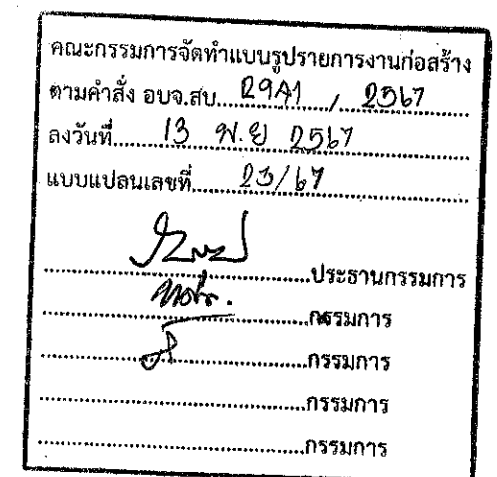 คณะกรรมการจัดทำแบบรูปรายการงานก่อสร้าง
ตามคำสั่ง อบจ.สบ. 2941 / 2567
ลงวันที่ 13 พ.ย 2567
แบบแปลนเลขที่ 23/67
ประธานกรรมการ
กรรมการ
กรรมการ
กรรมการ
กรรมการ